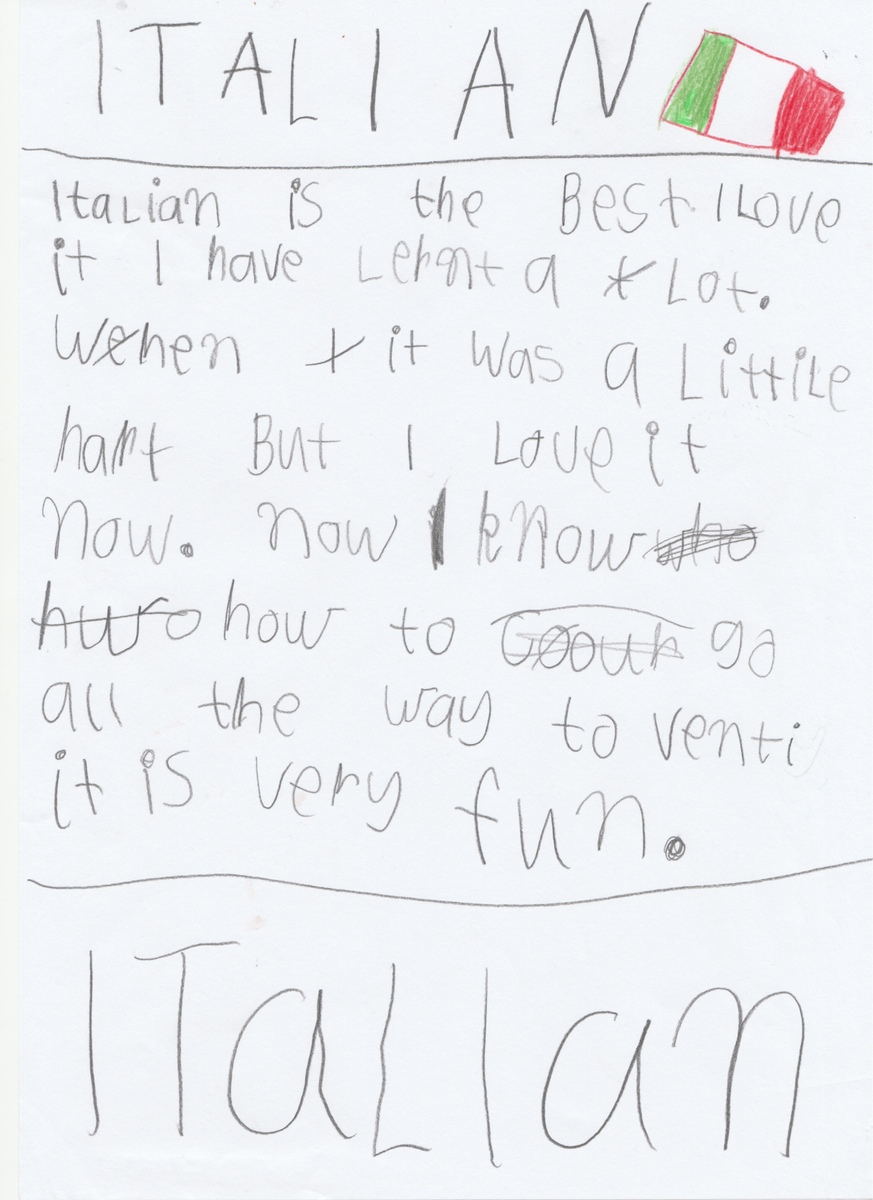 ITALIAN
Italian is the Best. I Love
it I have Lehnt a Lot.
When it was a Littile
hart But I Love it
Now. now I know
how to go
all the way to venti
it is very fun.
ITaLIan